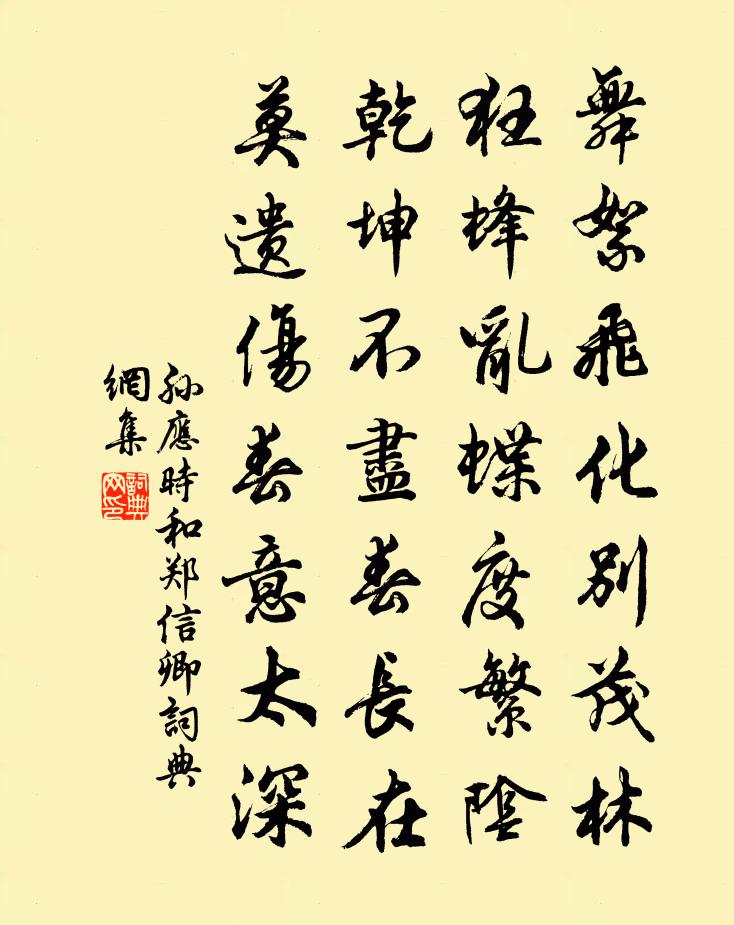 舞絮飛化別茂林
狂蜂亂蝶度繁陰
乾坤不盡春長在
莫遺傷春意太深
孫應時和郑信卿詞典
網集
詞典
网印